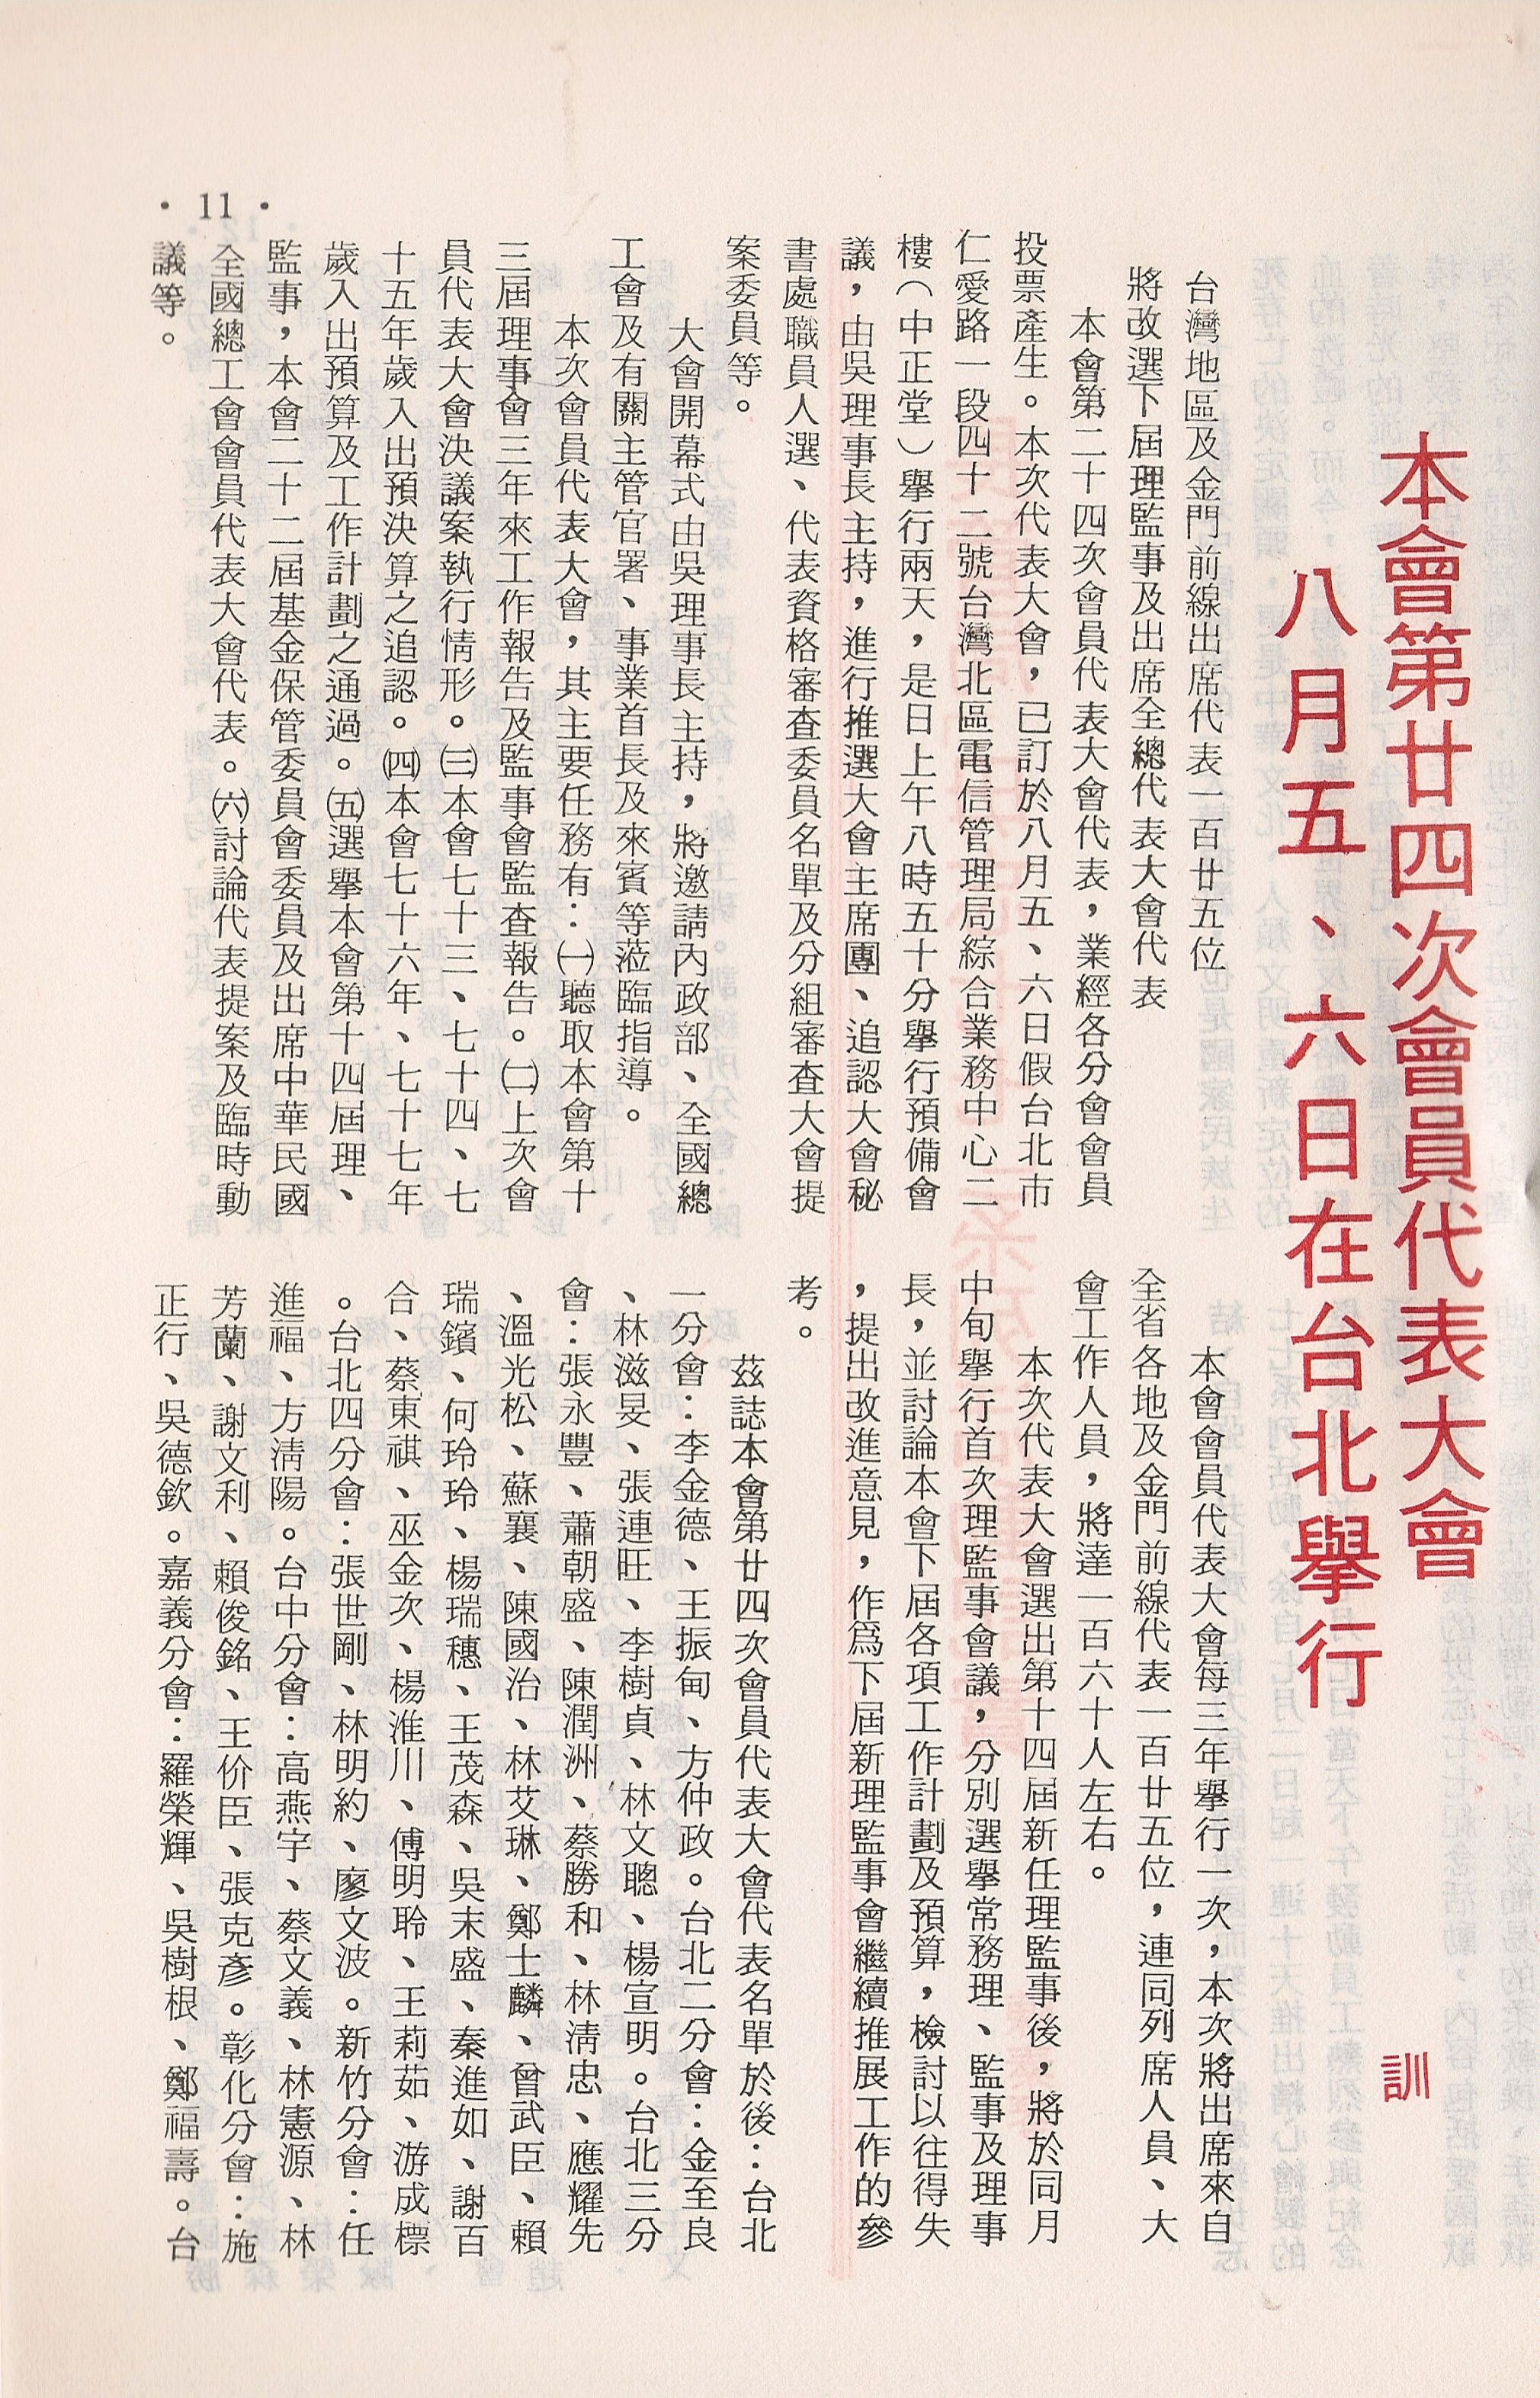 本會第廿四次會員代表大會
八月五、六日在台北舉行
訓
台灣地區及金門前線出席代表一百廿五位
將改選下屆理監事及出席全總代表大會代表
本會第二十四次會員代表大會代表，業經各分會會員
投票產生。本次代表大會，已訂於八月五、六日假台北市
仁愛路一段四十二號台灣北區電信管理局綜合業務中心二
樓（中正堂）舉行兩天，是日上午八時五十分舉行預備會
議，由吳理事長主持，進行推選大會主席團、追認大會秘
書處職員人選、代表資格審查委員名單及分組審查大會提
案委員等。
大會開幕式由吳理事長主持，將邀請內政部、全國總
工會及有關主管官署、事業首長及來賓等蒞臨指導。
本次會員代表大會，其主要任務有：㈠聽取本會第十
三屆理事會三年來工作報告及監事會監查報告。㈡上次會
員代表大會決議案執行情形。㈢本會七十三、七十四、七
十五年歲入出預決算之追認。㈣本會七十六年、七十七年
歲入出預算及工作計劃之通過。㈤選舉本會第十四屆理、
監事，本會二十二屆基金保管委員會委員及出席中華民國
全國總工會會員代表大會代表。㈥討論代表提案及臨時動
議等。
本會會員代表大會每三年舉行一次，本次將出席來自
全省各地及金門前線代表一百廿五位，連同列席人員、大
會工作人員，將達一百六十人左右。
本次代表大會選出第十四屆新任理監事後，將於同月
中旬舉行首次理監事會議，分別選舉常務理、監事及理事
長，並討論本會下屆各項工作計劃及預算，檢討以往得失
，提出改進意見，作為下屆新理監事會繼續推展工作的參
考。
茲誌本會第廿四次會員代表大會代表名單於後：台北
一分會：李金德、王振甸、方仲政。台北二分會：金至良
、林滋旻、張連旺、李樹貞、林文聰、楊宣明。台北三分
會：張永豐、蕭朝盛、陳潤洲、蔡勝和、林淸忠、應耀先
、溫光松、蘇襄、陳國治、林艾琳、鄭士麟、曾武臣、賴
瑞鑌、何玲玲、楊瑞穗、王茂森、吳末盛、秦進如、謝百
合、蔡東祺、巫金次、楊淮川、傅明聆、王莉茹、游成標
。台北四分會：張世剛、林明約、廖文波。新竹分會：任
進福、方淸陽。台中分會：高燕宇、蔡文義、林憲源、林
芳蘭、謝文利、賴俊銘、王价臣、張克彥。彰化分會：施
正行、吳德欽。嘉義分會：羅榮輝、吳樹根、鄭福壽。台
• 11 •